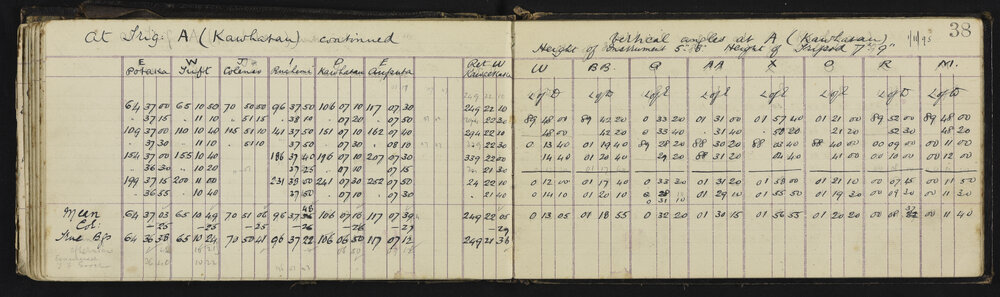 At Trig: A (Kawhatau) continued
E W J I P E Ret W
Potaka Trift Colenso Ruahine Kawhatau Aorangi
249 22 10
64 37 00 65 10 50 70 50 50 96 37 50 106 07 10 117 07 30 249 22 10
37 15 11 10 51 15 38 10 07 20 07 50 22 30
109 37 00 110 10 40 115 51 10 141 37 50 151 07 10 162 07 40 294 22 10
37 30 11 10 51 10 37 50 07 30 08 10 22 30
154 37 00 155 10 40 186 37 40 196 07 10 207 07 30 339 22 00
36 30 10 20 37 25 07 10 07 15 21 30
199 37 15 200 11 00 231 38 00 241 07 30 252 07 50 24 22 10
36 55 10 40 37 50 07 10 07 30 21 40
Mean 64 37 03 65 10 49 70 51 06 96 37 48 106 07 16 117 07 39 249 22 05
Col: -25 -25 -25 -26 -26 -27 -29
True Bgs 64 36 38 65 10 24 70 50 41 96 37 22 106 06 50 117 07 12 249 21 36
38
Vertical angles at A (Kawhatau)
Height of Instrument 5' 8" Height of Tripod 7' 9"
W BB. G AA X O R M.
L of D L of D L of E L of E L of E L of E L of D L of D
89 48 00 89 42 20 0 33 20 01 31 00 01 57 40 01 21 00 89 52 00 89 48 00
48 00 42 20 0 33 40 31 40 58 20 21 20 52 30 48 20
0 13 40 01 19 40 89 28 20 88 30 20 88 03 40 88 40 00 00 09 00 00 11 00
14 40 01 20 40 29 20 88 31 20 04 40 41 00 00 10 00 00 12 00
0 12 00 01 17 40 0 33 30 01 31 20 01 58 00 01 21 10 00 07 45 00 11 50
0 14 10 01 20 10 0 31 10 01 29 10 01 55 50 01 19 30 00 09 30 00 11 30
0 13 05 01 18 55 0 32 20 01 30 15 01 56 55 01 20 20 00 08 37 00 11 40